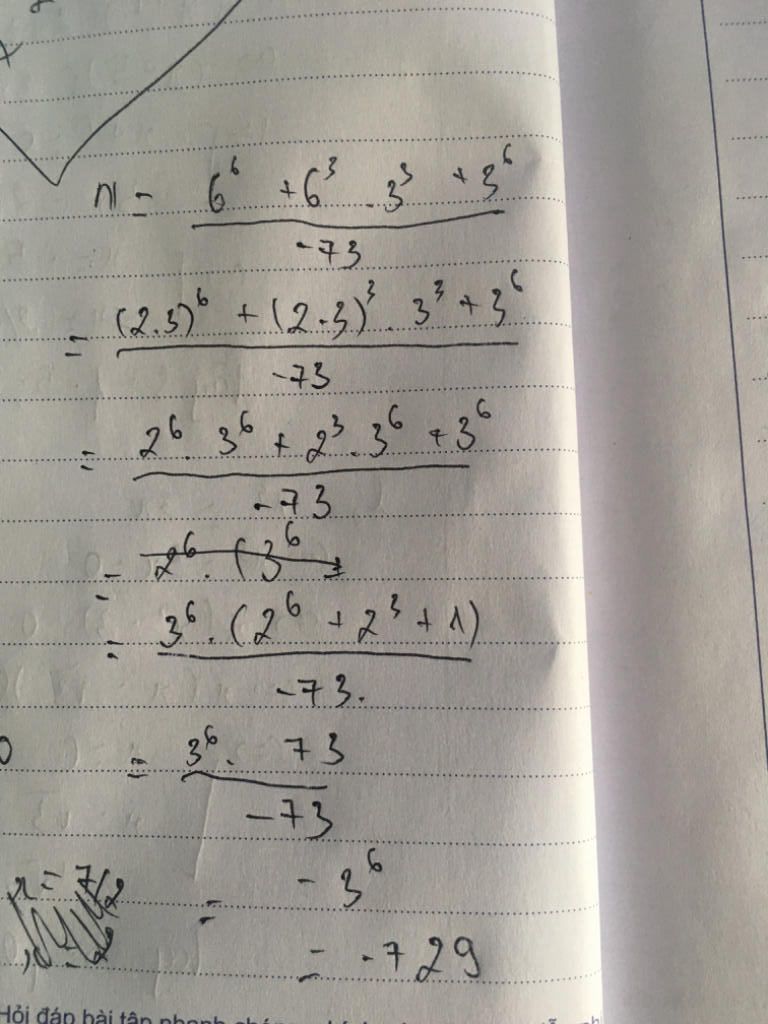 M = \frac{6^6 + 6^3 . 3^3 + 3^6}{-73}
= \frac{(2.3)^6 + (2.3)^3 . 3^3 + 3^6}{-73}
= \frac{2^6 . 3^6 + 2^3 . 3^6 + 3^6}{-73}
= 2^6 . (3^6
= \frac{3^6 . (2^6 + 2^3 + 1)}{-73.}
= \frac{3^6 . 73}{-73}
x = 7/2
= -3^6
= -729
Hỏi đáp bài tập nhanh